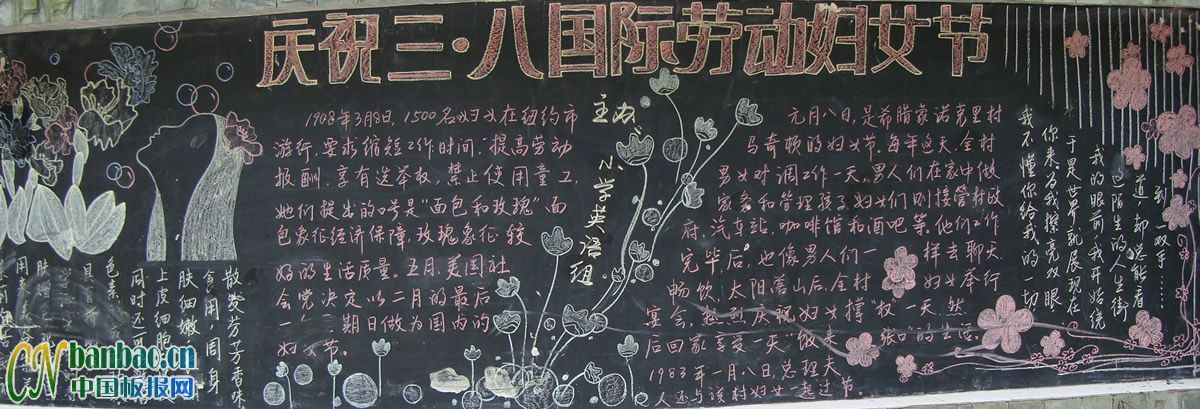 庆祝三·八国际劳动妇女节
1908年3月8日，1500名妇女在纽约市
游行，要求缩短工作时间，提高劳动
报酬，享有选举权，禁止使用童工
她们提出的口号是“面包和玫瑰”面
包象征经济保障，玫瑰象征较
好的生活质量。五月，美国社
会党决定以二月的最后
一个 期日做为国内的
妇女节。
主办
小学英语组
元月八日，是希腊蒙诺克里村
马奇顿的妇女节，每年这天，全村
男女对调工作一天。男人们在家中做
家务和管理孩子，妇女们则接管村政
府、汽车站、咖啡馆和酒吧等。他们工作
完毕后，也像男人们一样去聊天
畅饮，太阳落山后，全村妇女举行
宴会，热烈庆祝妇女撑“权”一天，然
后回家享受一天“饭来张口”的生活。
1983年一月八日，总理夫
人还与该村妇女一起过节。
到一双手……
道，却总能看
这陌生的人生街
我的眼前，我开始绕
于是世界就展现在
你来为我擦亮双眼
我不懂你给我的一切
散发芳芳香味
食用，周身
肤细嫩
上皮细胞
同时还
色素
CN banbao.cn
中国板报网